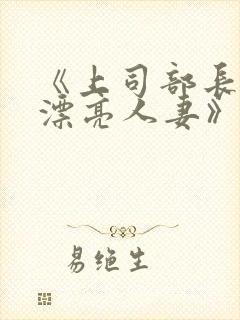 《上司部长
漂亮人妻》
易绝生